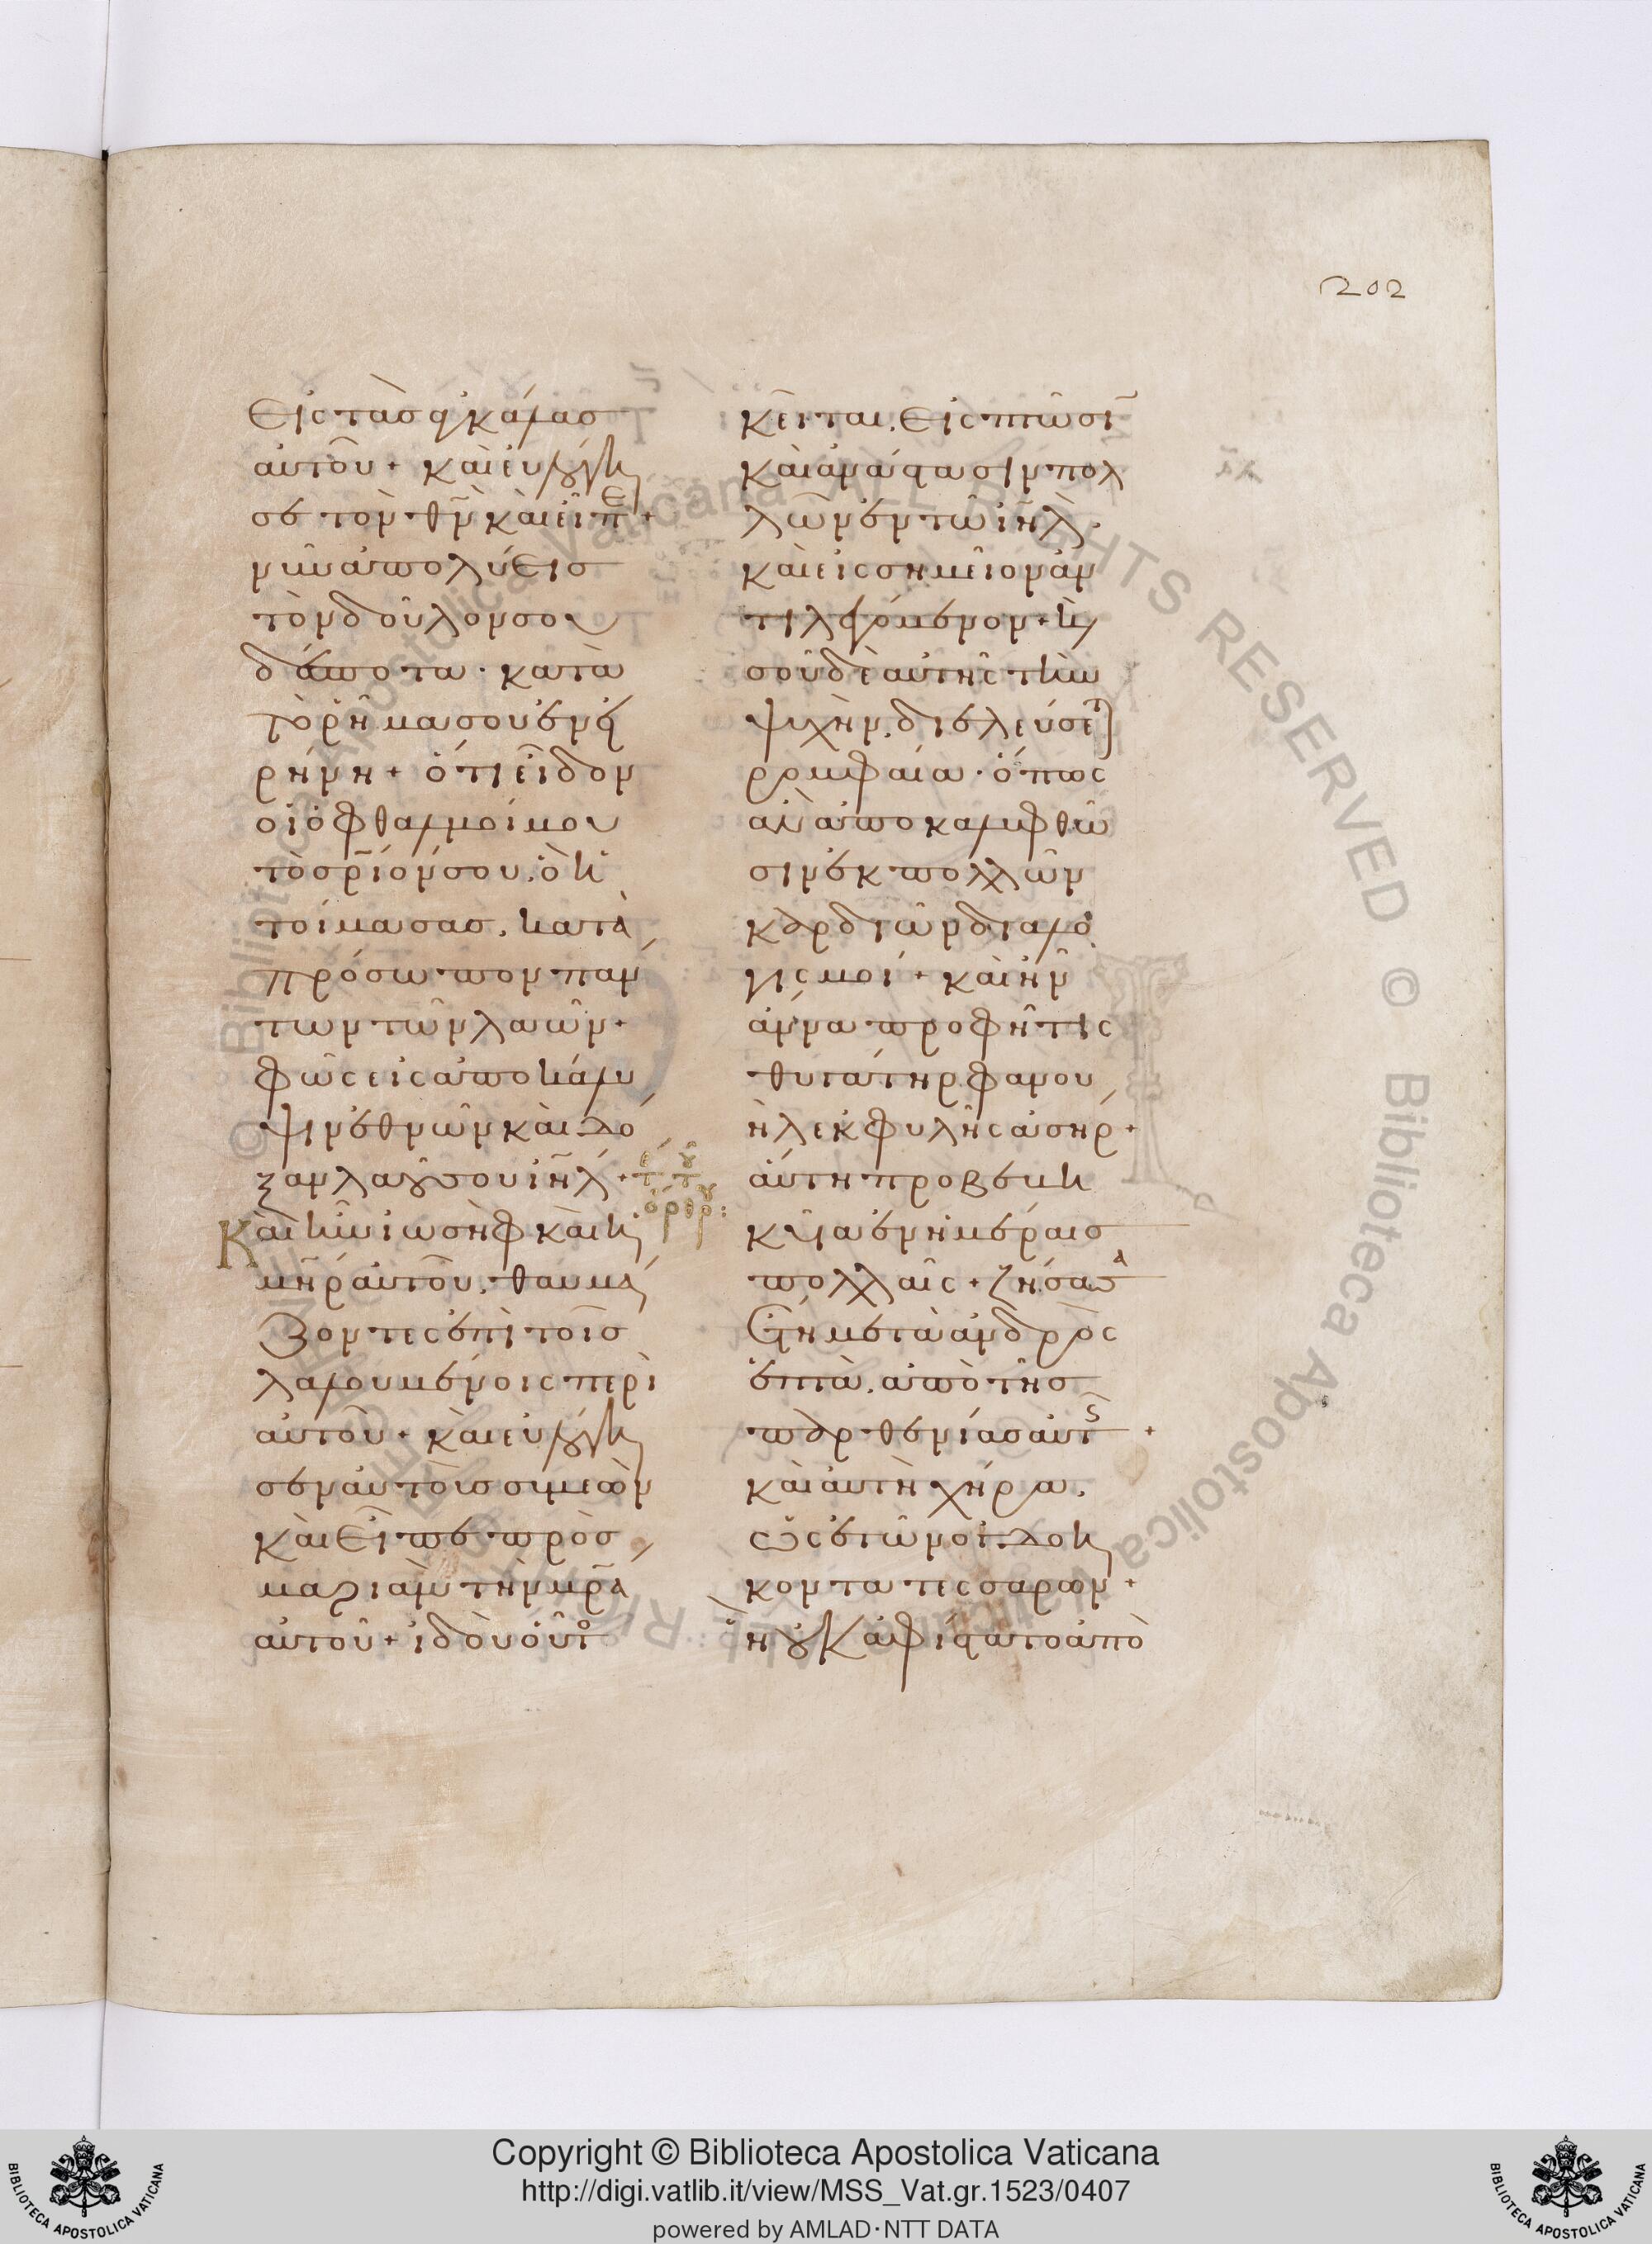 202
εἰς τὰς ἀγκάλας
αὐτοῦ + καὶ εὐλόγη
σε τὸν θν̄ καὶ εἶπε +
νῦν ἀπολύεις
τὸν δοῦλον σου
δέσποτα · κατὰ
τὸ ῥῆμα σου ἐν εἰ
ρήνη + ὅτι εἶδον
οἱ ὀφθαλμοί μου
τὸ σρ̄ιόν σου · ὃ ἡ
τοίμασας · κατὰ
πρόσωπον πάν
των τῶν λαῶν +
φῶς εἰς ἀποκάλυ
ψιν ἐθνῶν καὶ δό
ξαν λαοῦ σου ιη̄λ +
Καὶ ἦν ἰωσὴφ καὶ ἡ
μη̄ρ αὐτοῦ · θαυμά
ζοντες ἐπὶ τοῖς
λαλουμένοις περὶ
αὐτοῦ + καὶ εὐλόγη
σεν αὐτοὺς συμεὼν
καὶ εἶπε πρὸς
μαριὰμ τὴν μρ̄α
αὐτοῦ + ἰδοὺ οὗτος
κεῖται · εἰς πτῶσιν
καὶ ἀνάστασιν πολ
λῶν ἐν τῶ ιη̄λ ·
καὶ εἰς σημεῖον ἀν
τιλεγόμενον + κ(αὶ)
σοῦ δὲ αὐτῆς τὴν
ψυχὴν · διελεύσεται
ῥομφαία · ὅπως
ἂν ἀποκαλυφθῶ
σιν ἐκ πολλῶν
καρδιῶν διαλο
γισμοί + καὶ ἦν
ἄννα προφῆτις
θυγάτηρ φανου
ὴλ ἐκ φυλῆς ἀσήρ +
αὕτη προβεβη
κυῖα ἐν ἡμέραις
πολλαῖς + ζήσασα
ἔτη μετὰ ἀνδρὸς
ἑπτὰ · ἀπὸ τῆς
παρθενίας αὐτῆς +
καὶ αὐτὴ χήρα ·
ὡς ἐτῶν ὀγδοή
κοντα τεσσάρων +
ἣ οὐκ ἀφίστατο ἀπὸ
Copyright © Biblioteca Apostolica Vaticana
http://digi.vatlib.it/view/MSS_Vat.gr.1523/0407
powered by AMLAD·NTT DATA